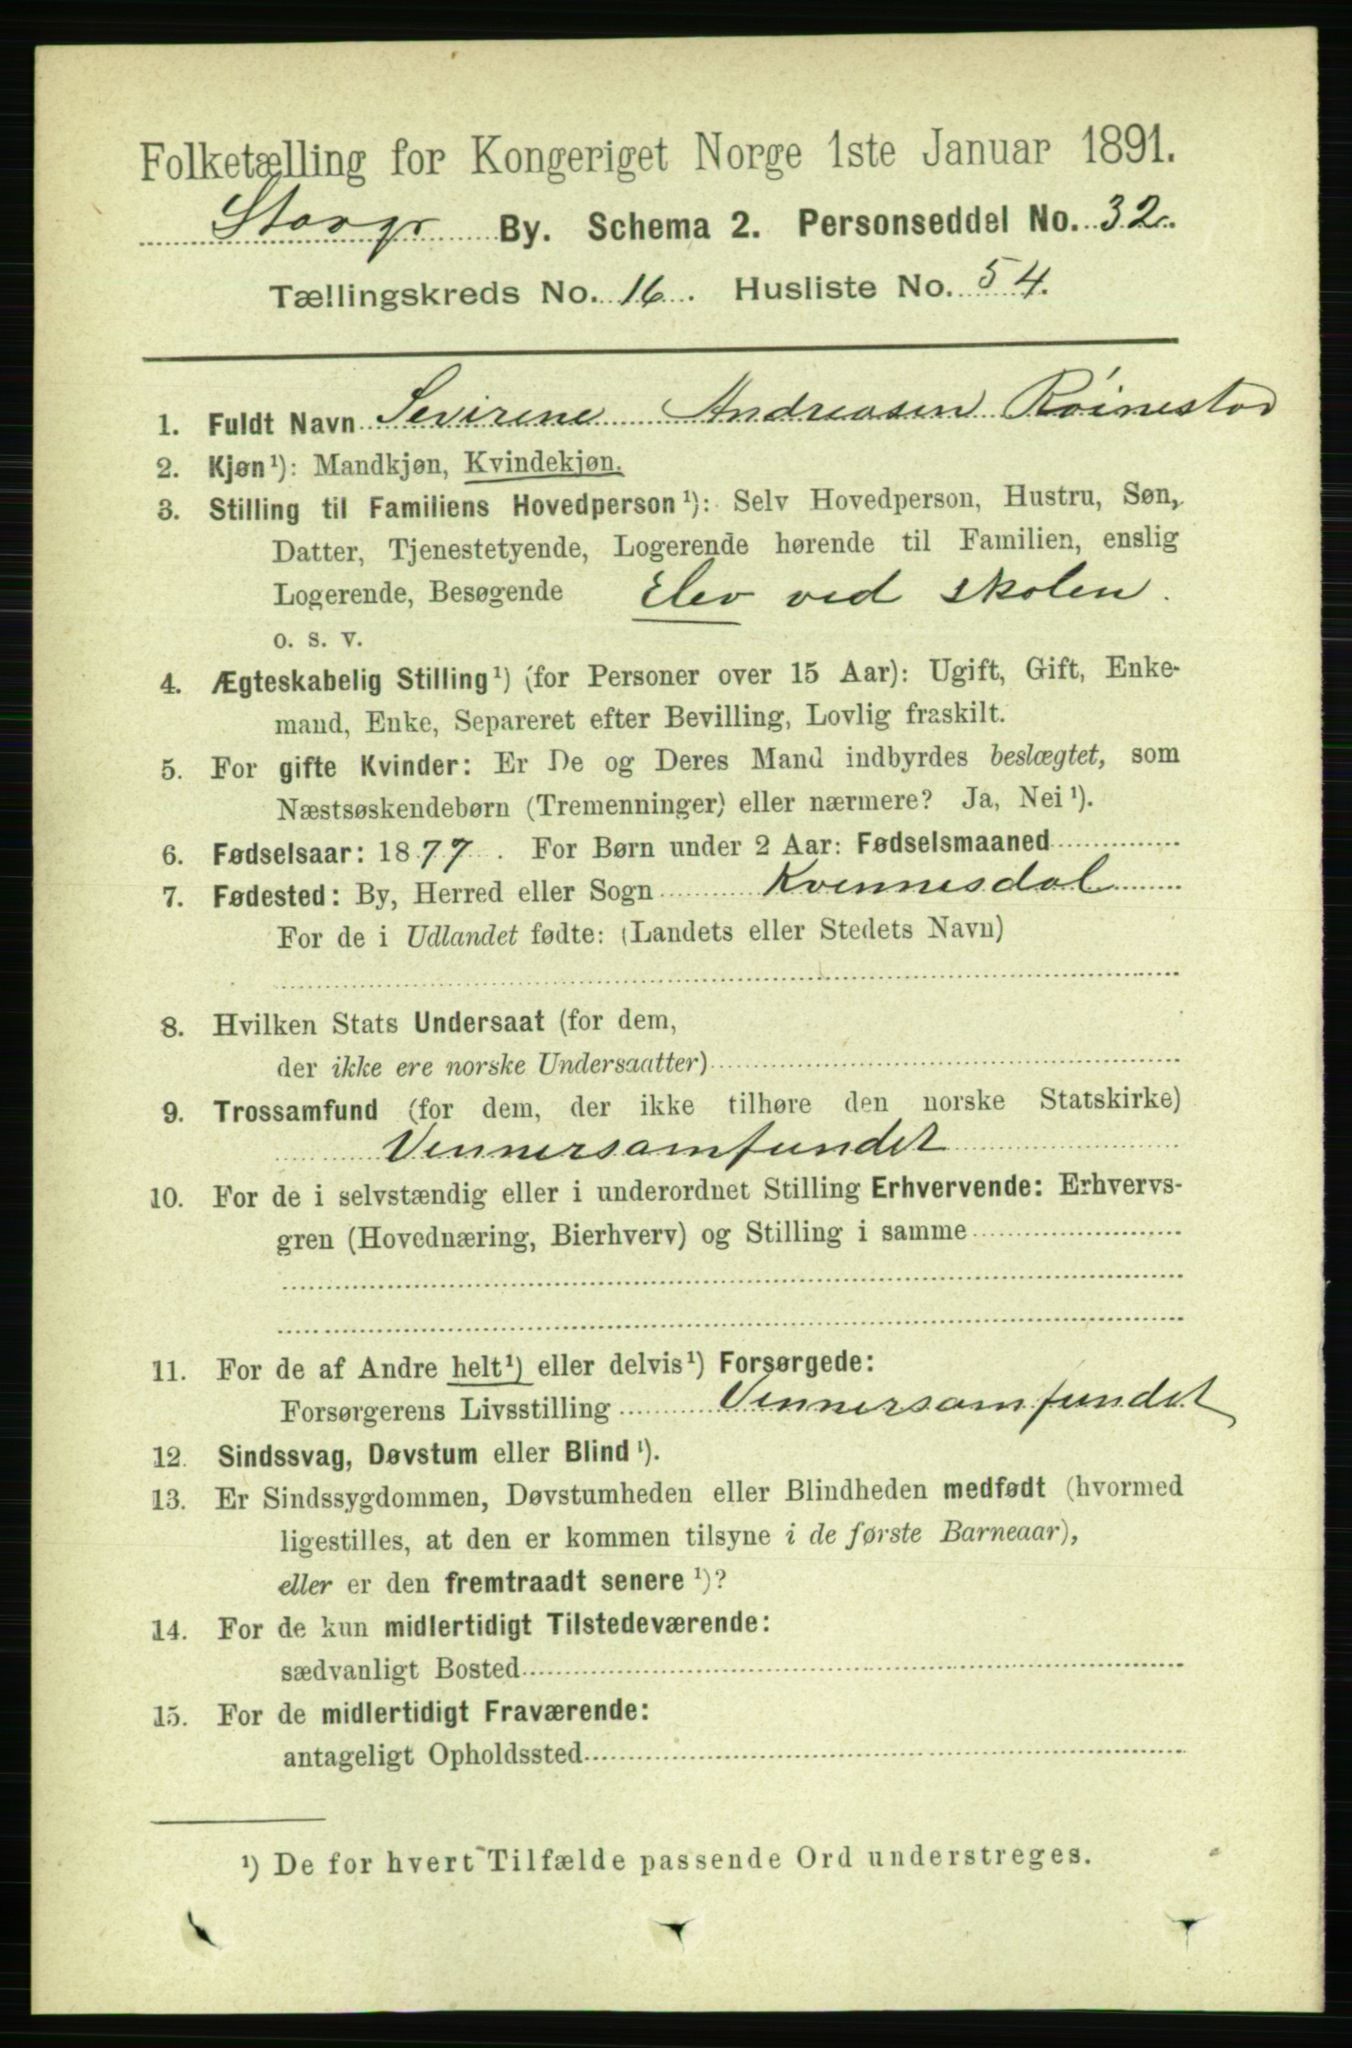 Folketælling for Kongeriget Norge 1ste Januar 1891.
Stavgr By. Schema 2. Personseddel No. 32.
Tællingskreds No. 16. Husliste No. 54.
1. Fuldt Navn Sevirene Andreasen Röinestad
2. Kjøn¹): Mandkjøn, Kvindekjøn.
3. Stilling til Familiens Hovedperson¹): Selv Hovedperson, Hustru, Søn,
Datter, Tjenestetyende, Logerende hørende til Familien, enslig
Logerende, Besøgende Elev ved skolen.
o. s. v.
4. Ægteskabelig Stilling¹) (for Personer over 15 Aar): Ugift, Gift, Enke-
mand, Enke, Separeret efter Bevilling, Lovlig fraskilt.
5. For gifte Kvinder: Er De og Deres Mand indbyrdes beslægtet, som
Næstsøskendebørn (Tremenninger) eller nærmere? Ja, Nei¹).
6. Fødselsaar: 1877. For Børn under 2 Aar: Fødselsmaaned
7. Fødested: By, Herred eller Sogn Kvennesdal
For de i Udlandet fødte: (Landets eller Stedets Navn)
8. Hvilken Stats Undersaat (for dem,
der ikke ere norske Undersaatter)
9. Trossamfund (for dem, der ikke tilhøre den norske Statskirke)
Vennersamfundet
10. For de i selvstændig eller i underordnet Stilling Erhvervende: Erhvervs-
gren (Hovednæring, Bierhverv) og Stilling i samme
11. For de af Andre helt¹) eller delvis¹) Forsørgede:
Forsørgerens Livsstilling Vennersamfundet
12. Sindssvag, Døvstum eller Blind¹).
13. Er Sindssygdommen, Døvstumheden eller Blindheden medfødt (hvormed
ligestilles, at den er kommen tilsyne i de første Barneaar),
eller er den fremtraadt senere¹)?
14. For de kun midlertidigt Tilstedeværende:
sædvanligt Bosted
15. For de midlertidigt Fraværende:
antageligt Opholdssted
¹) De for hvert Tilfælde passende Ord understreges.